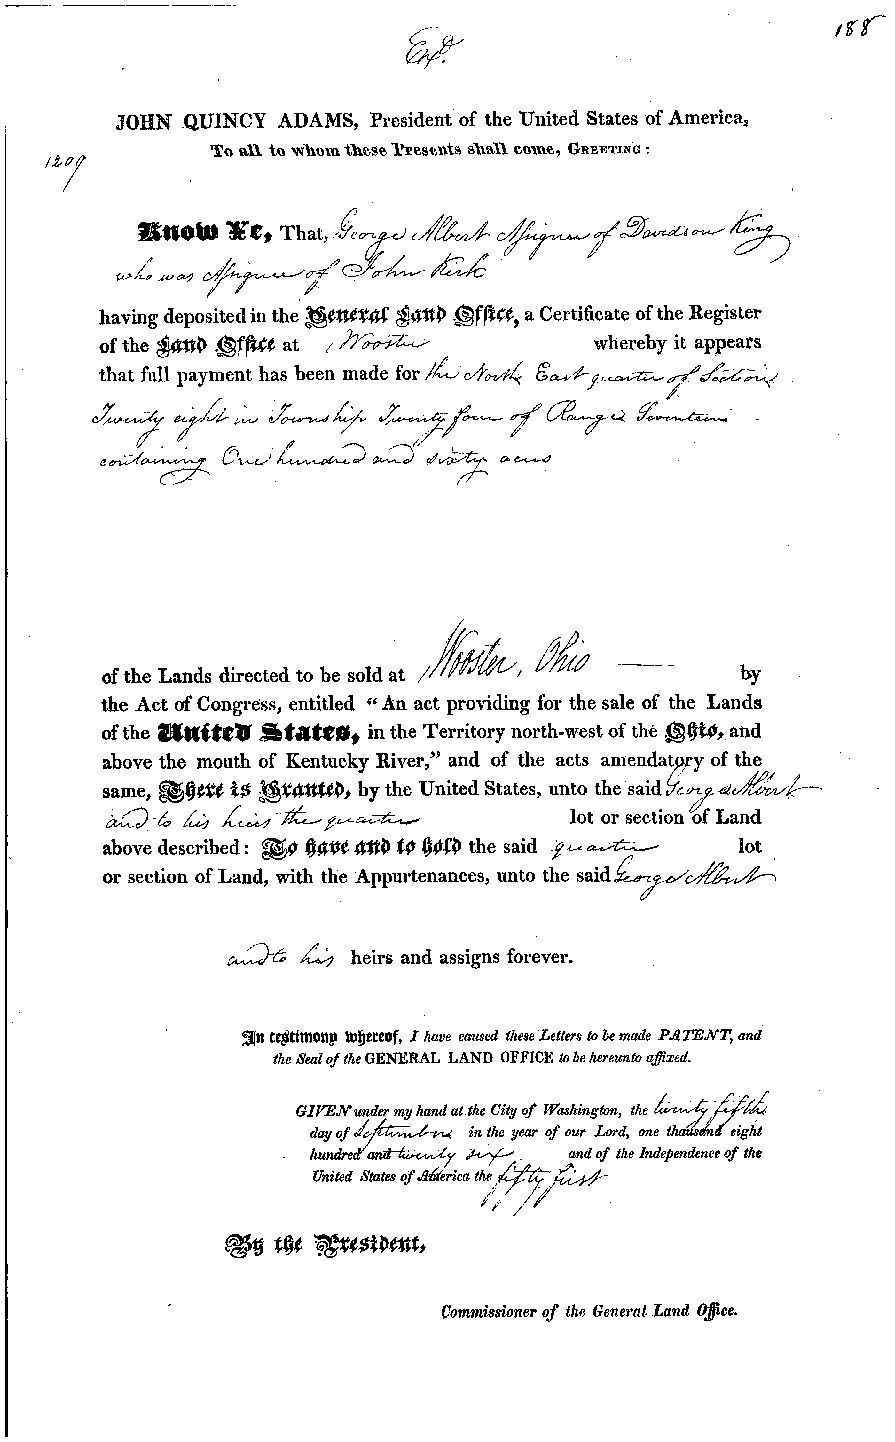 188
Exd.
JOHN QUINCY ADAMS, President of the United States of America,
To all to whom these Presents shall come, GREETING:
1209
Know Ye, That, George Albert Assignee of Davidson King
who was Assignee of John Kirk
having deposited in the General Land Office, a Certificate of the Register
of the Land Office at Wooster whereby it appears
that full payment has been made for the North East quarter of Section
Twenty eight in Township Twenty four of Range Seventeen
containing One hundred and sixty acres
of the Lands directed to be sold at Wooster, Ohio by
the Act of Congress, entitled "An act providing for the sale of the Lands
of the United States, in the Territory north-west of the Ohio, and
above the mouth of Kentucky River," and of the acts amendatory of the
same, There is Granted, by the United States, unto the said George Albert
and to his heirs the quarter lot or section of Land
above described: To have and to hold the said quarter lot
or section of Land, with the Appurtenances, unto the said George Albert
and to his heirs and assigns forever.
In testimony whereof, I have caused these Letters to be made PATENT, and
the Seal of the GENERAL LAND OFFICE to be hereunto affixed.
GIVEN under my hand at the City of Washington, the twenty fifth
day of September in the year of our Lord, one thousand eight
hundred and twenty six and of the Independence of the
United States of America the fifty first
By the President,
Commissioner of the General Land Office.